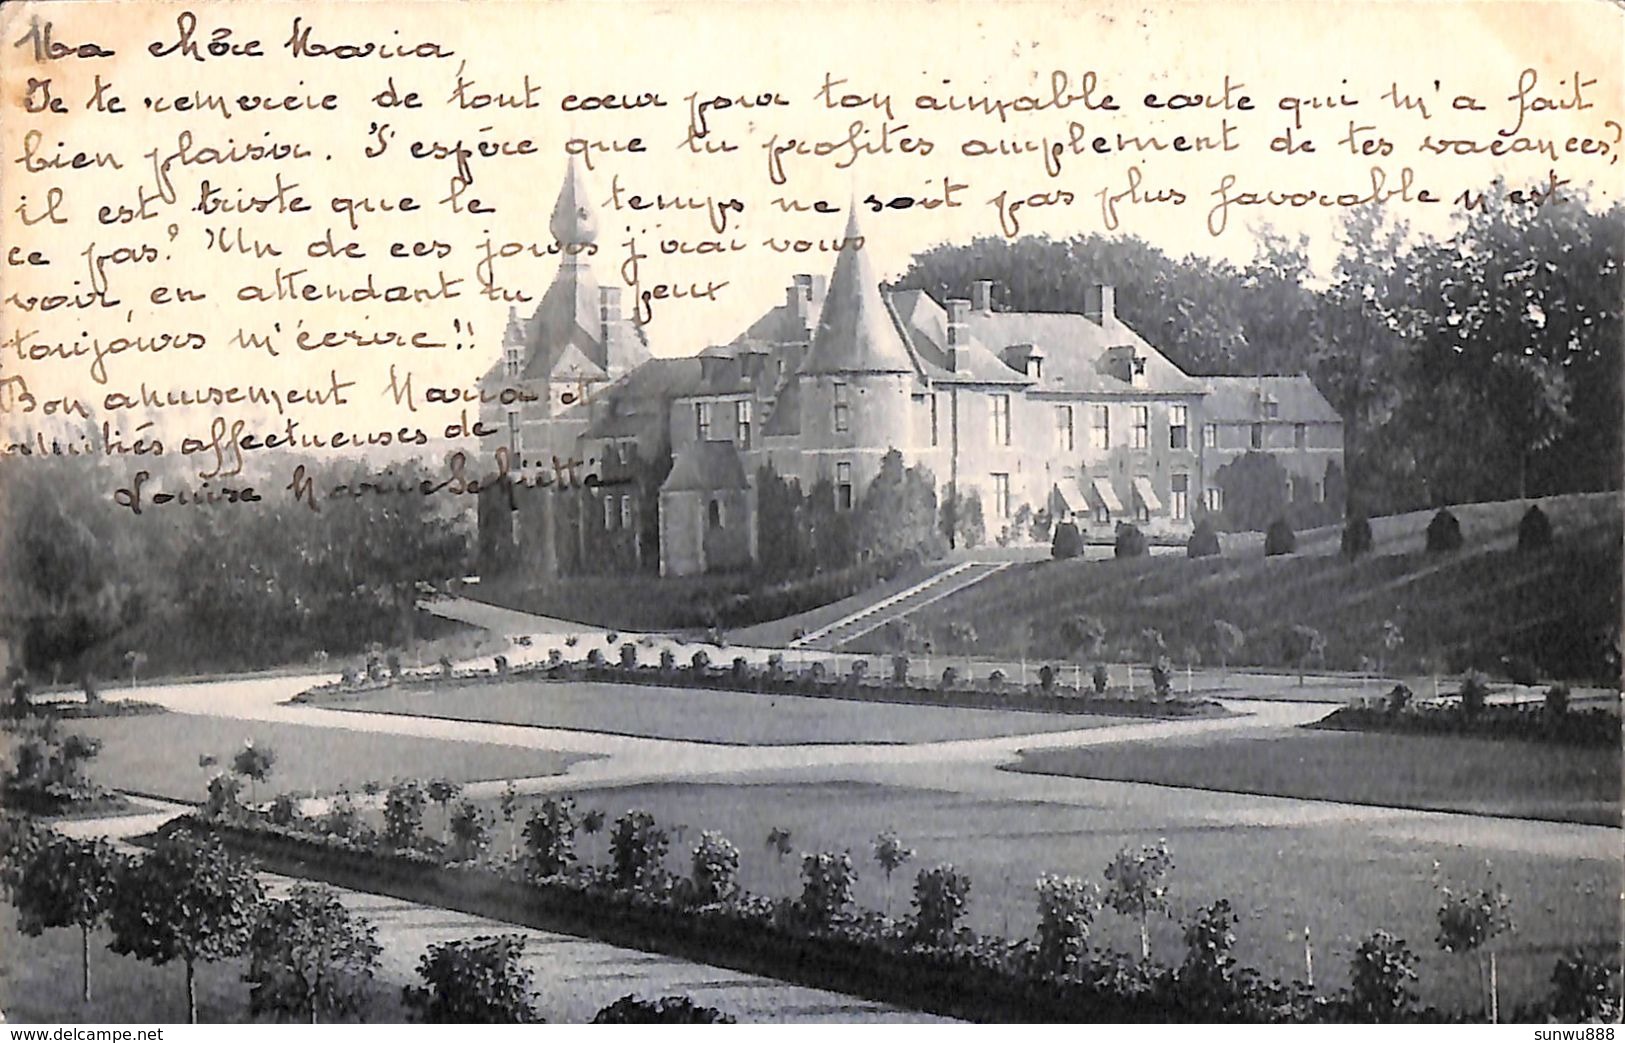 Ma chère Maria,
Je te remercie de tout coeur pour ton aimable carte qui m'a fait
bien plaisir. J'espère que tu profites amplement de tes vacances,
il est triste que le temps ne soit pas plus favorable n'est
ce pas? Un de ces jours j'irai vous
voir, en attendant tu peux
toujours m'écrire!!
Bon amusement Maria et
amitiés affectueuses de
Louise Marie Schütte
© delcampe.net
sunwu888